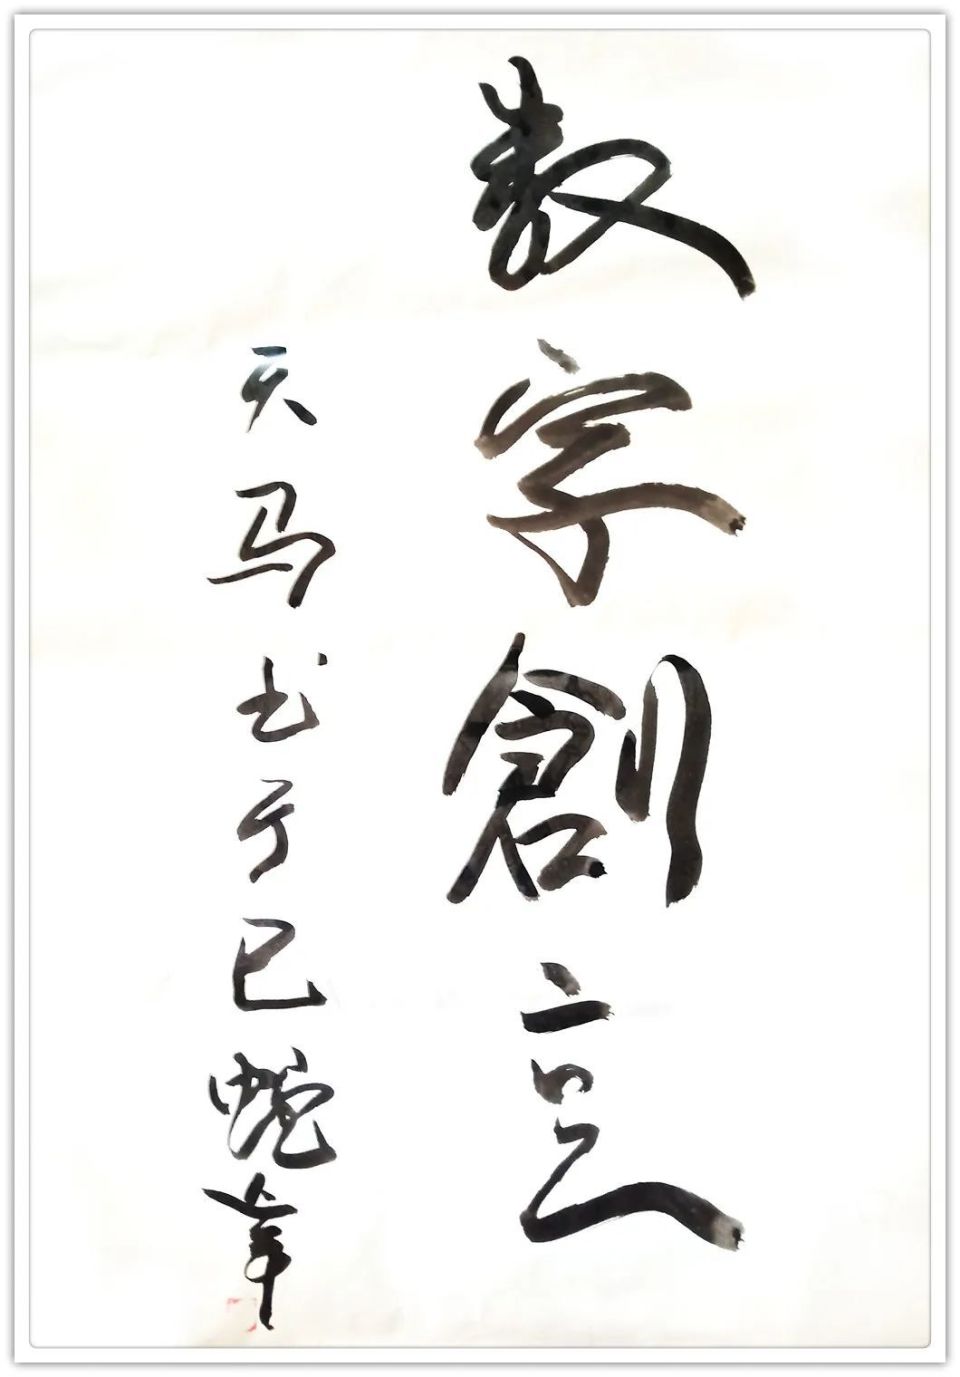 数字創意
天马书于巳蛇年